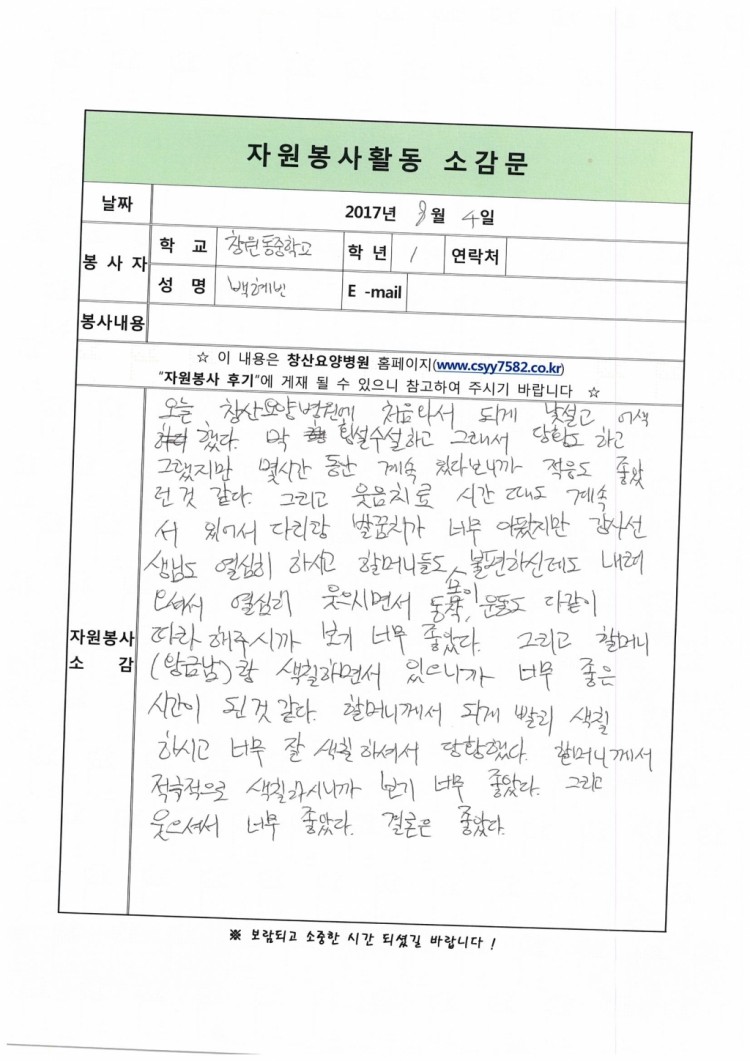 자원봉사활동 소감문
날짜 2017년 8월 4일
봉사자 학교 창원동중학교 학년 1 연락처
성명 백혜빈 E-mail
봉사내용
☆ 이 내용은 창산요양병원 홈페이지(www.csyy7582.co.kr)
"자원봉사 후기"에 게재 될 수 있으니 참고하여 주시기 바랍니다 ☆
자원봉사 소감
오늘 창산요양병원에 처음와서 되게 낯설고 어색
했다. 막 횡설수설하고 그래서 당황도 하고
그랬지만 몇시간 동안 계속 있다보니까 적응도 좋았
던 것 같다. 그리고 웃음치료 시간 때도 계속
서 있어서 다리랑 발꿈치가 너무 아팠지만 강사선
생님도 열심히 하시고 할머니들도 불편하신데도 내려
오셔서 열심히 웃으시면서 동작, 운동도 다같이
따라 해주시까 보기 너무 좋았다. 그리고 할머니
(앙금남)랑 색칠하면서 있으니까 너무 좋은
시간이 된 것 같다. 할머니께서 되게 빨리 색칠
하시고 너무 잘 색칠하셔서 당황했다. 할머니께서
적극적으로 색칠하시니까 보기 너무 좋았다. 그리고
웃으셔서 너무 좋았다. 결론은 좋았다.
※ 보람되고 소중한 시간 되셨길 바랍니다 !